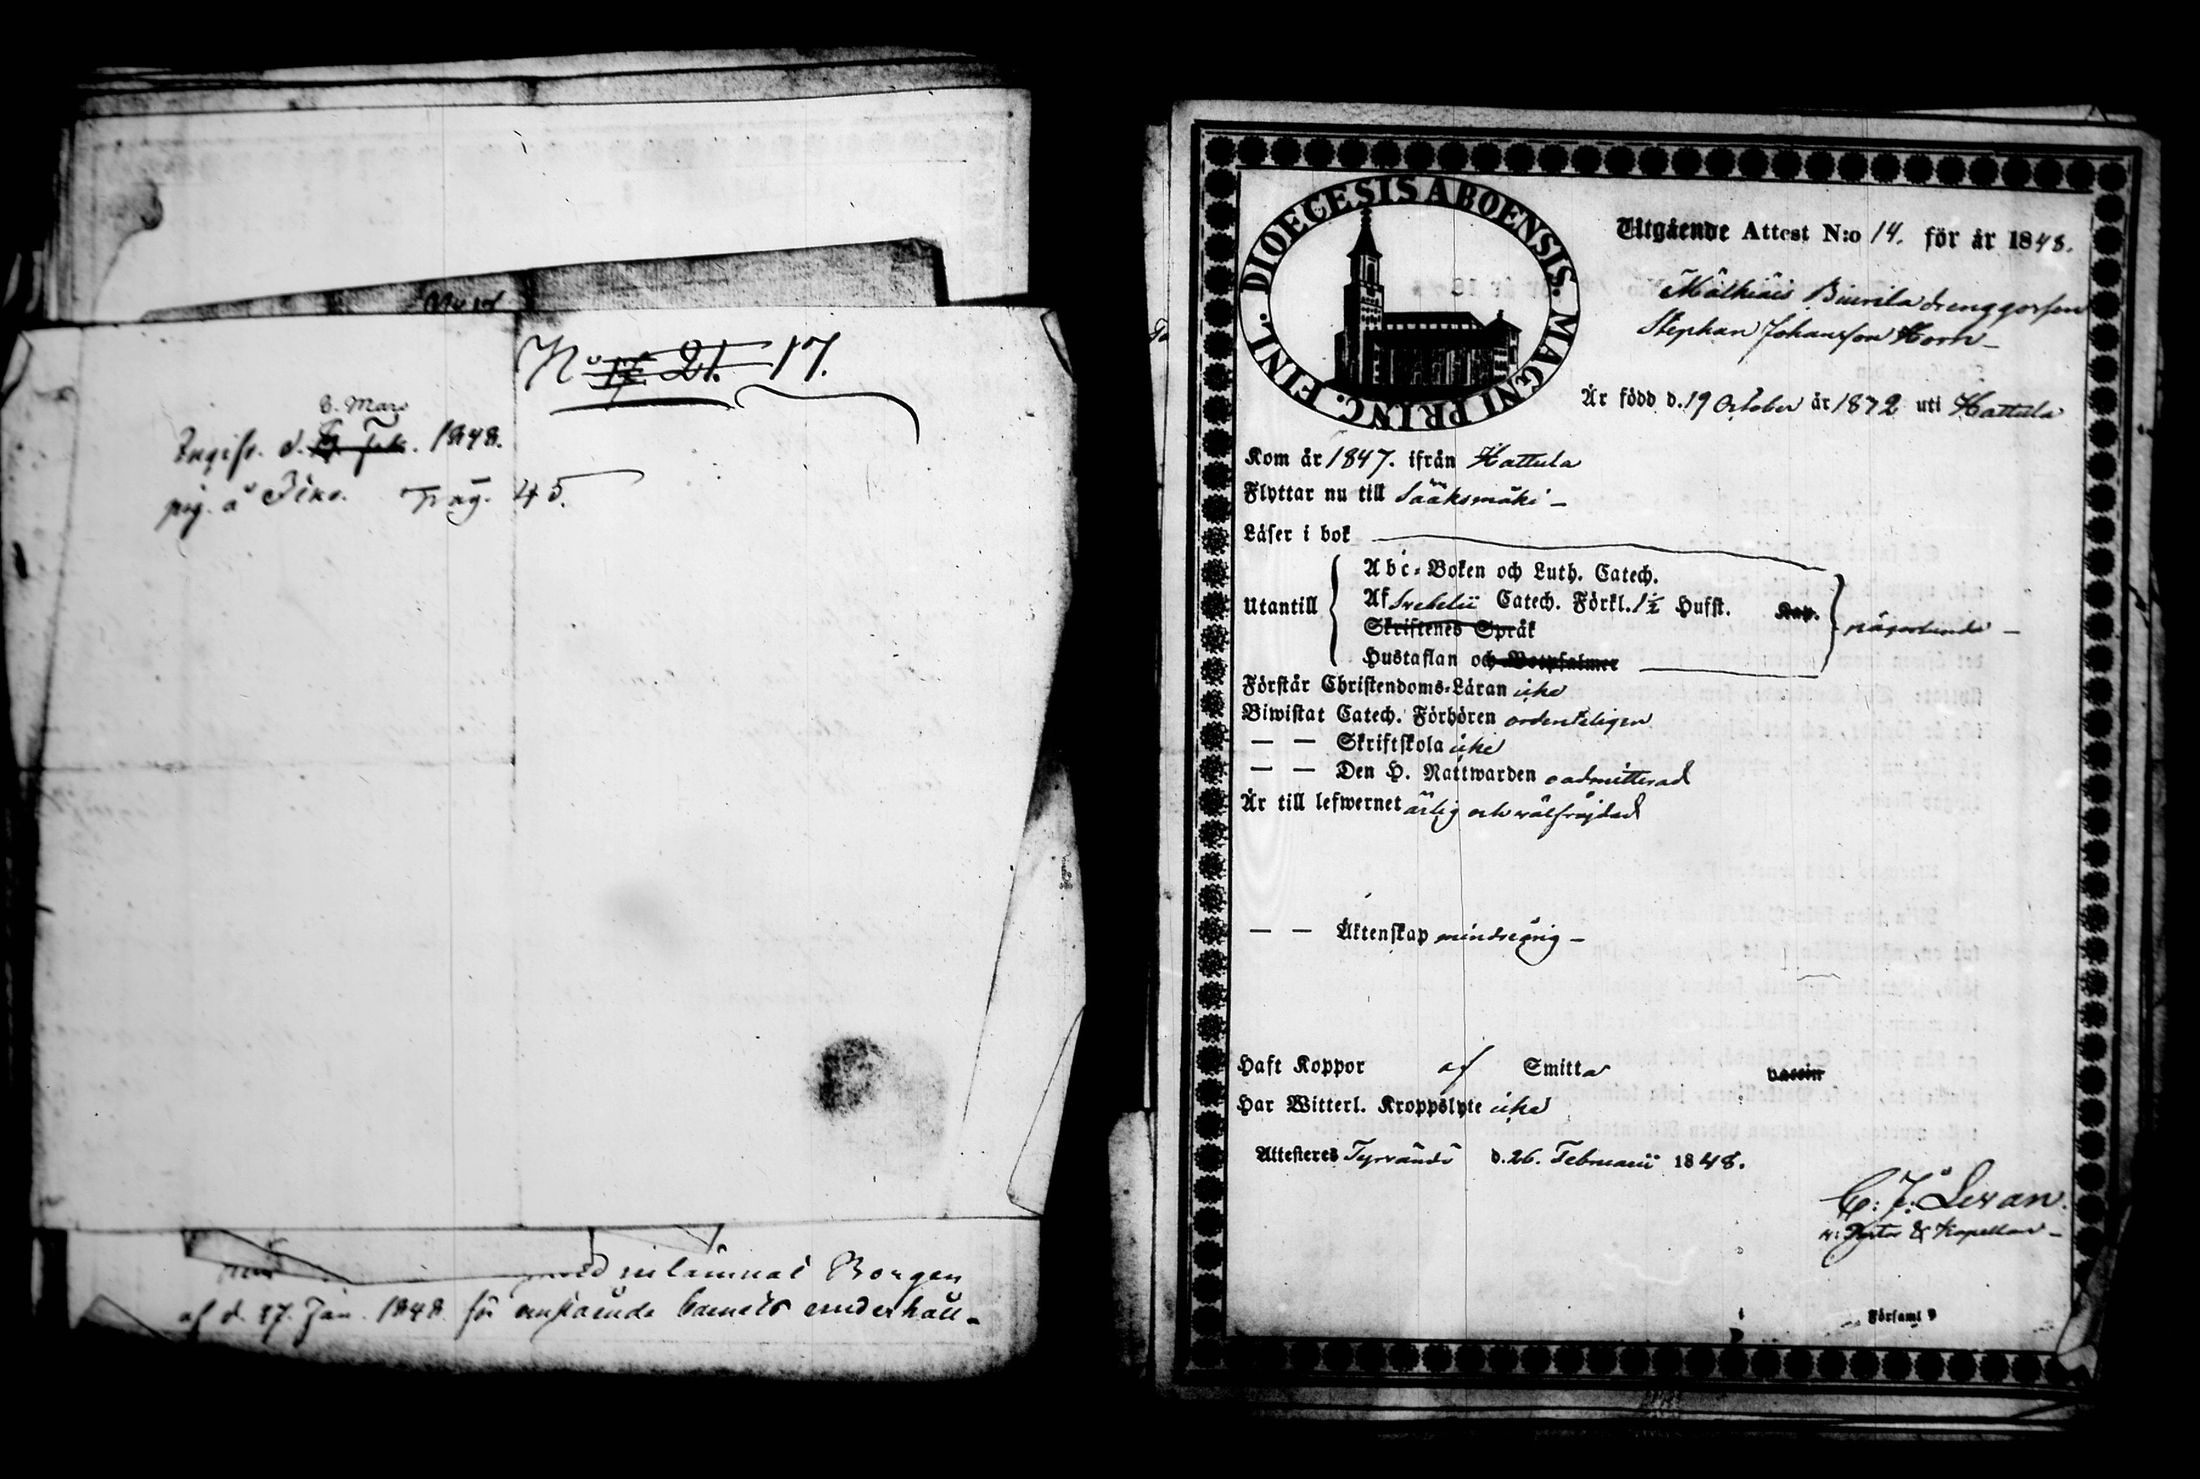 No 17 21. 17.
3. Mars
Ingifv. d. 4 feb. 1848.
pig. å Ike. Pag. 45.
inlämnat Borgen
af d. 27. Jan. 1848 för omstående barnets underhåll
DIOECESIS ABOENSIS. MAGNI PRINC. FINL.
Utgående Attest N:o 14. för år 1848.
Mathiais drenggossen
Stephan Johansson Horn
Är född d. 19 October år 1832 uti Hattula
Kom år 1847. ifrån Hattula
Flyttar nu till Sääksmäki
Läser i bok
Utantill
Abc-Boken och Luth. Catech.
Af Svebelii Catech. Förkl. 1½ Hufst. Kap.
Skriftenes Språk
Hustaflan och Botpsalmer
någorlunda
Förstår Christendoms-Läran icke
Biwistat Catech. Förhören ordenteligen
— — Skriftskola icke
— — Den H. Nattwarden oadmitterad
Är till lefwernet ärlig och välfräjdad
— — Äktenskap mindreårig
Haft Koppor af Smitta vaccin
Har Witterl. Kroppslyte icke
Attesteras Tyrvändö d. 26. Februarii 1848.
C. J. Levan.
v: Pastor & Kapellan
Församl 9